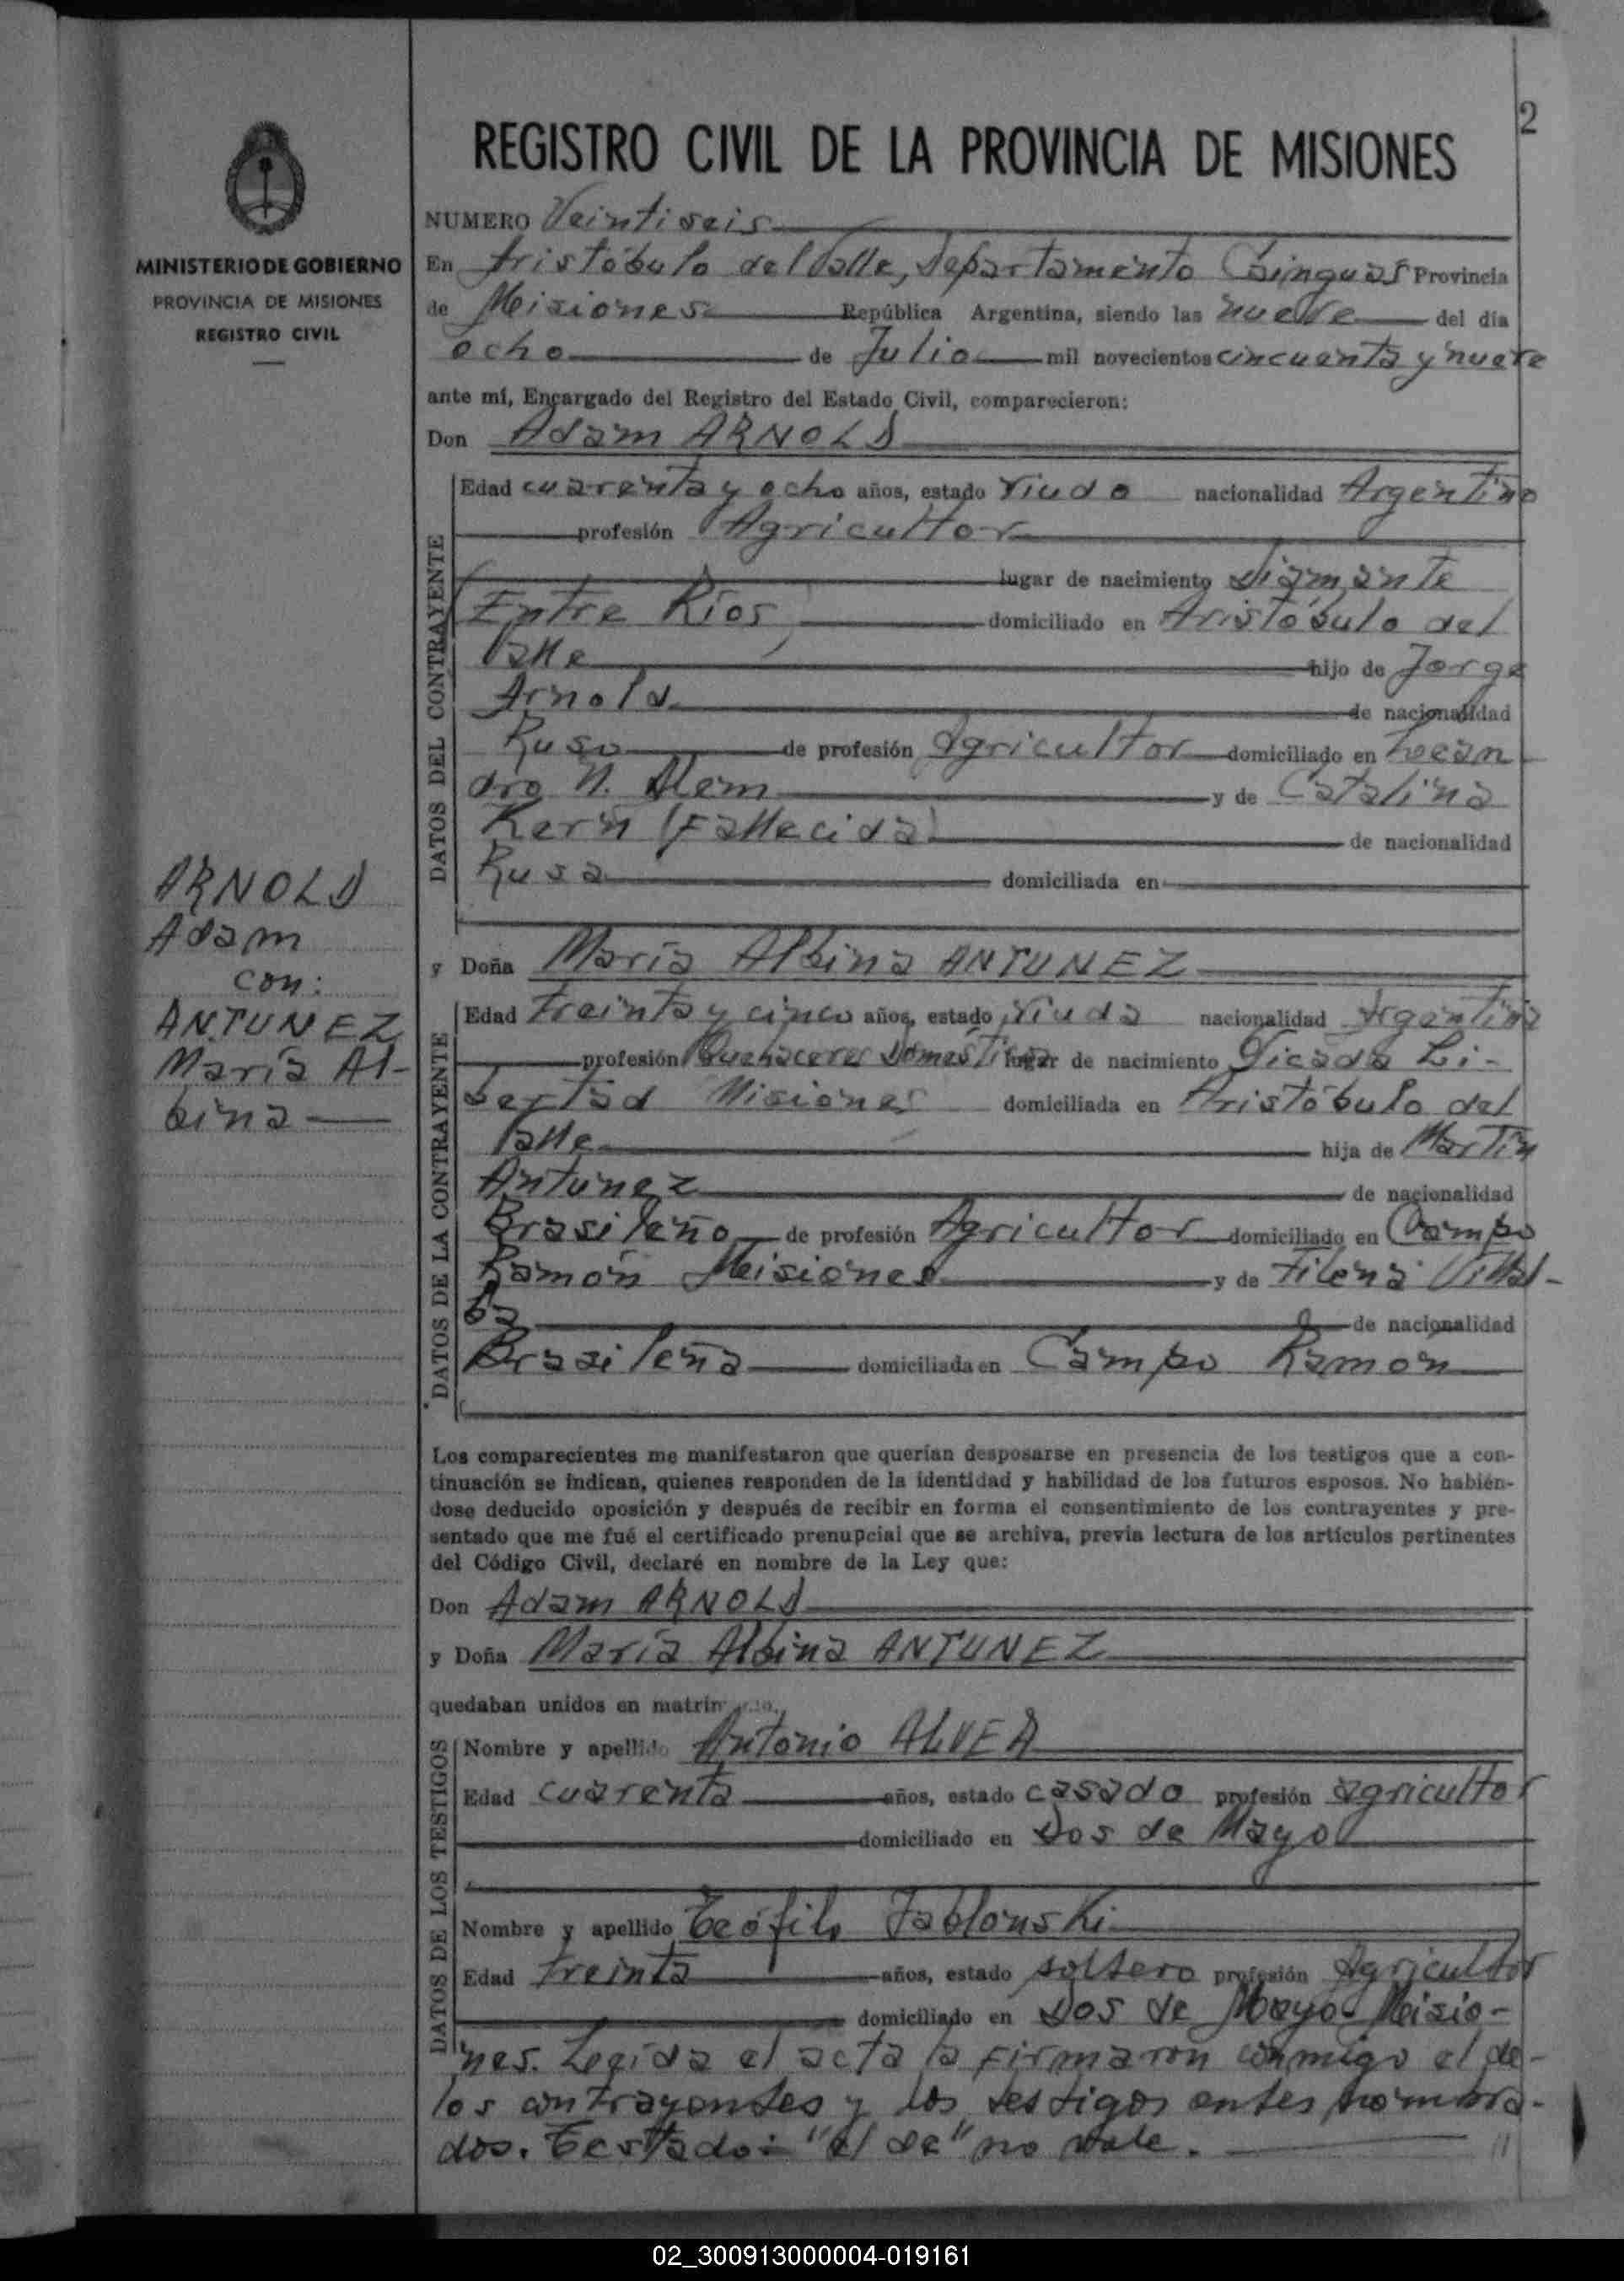 2
REGISTRO CIVIL DE LA PROVINCIA DE MISIONES
MINISTERIO DE GOBIERNO
PROVINCIA DE MISIONES
REGISTRO CIVIL
NUMERO Veintiseis
En Aristóbulo del Valle, Departamento Cainguas Provincia
de Misiones República Argentina, siendo las nueve del día
ocho de Julio mil novecientos cincuenta y nueve
ante mí, Encargado del Registro del Estado Civil, comparecieron:
Don Adam ARNOLD
DATOS DEL CONTRAYENTE
Edad cuarenta y ocho años, estado Viudo nacionalidad Argentino
profesión Agricultor
lugar de nacimiento Diamante
(Entre Ríos) domiciliado en Aristóbulo del
Valle hijo de Jorge
Arnold de nacionalidad
Ruso de profesión Agricultor domiciliado en Lean
dro N. Alem y de Catalina
Kern (Fallecida) de nacionalidad
Rusa domiciliada en
ARNOLD
Adam
con:
ANTUNEZ
María Al-
bina
y Doña María Albina ANTUNEZ
DATOS DE LA CONTRAYENTE
Edad treinta y cinco años, estado Viuda nacionalidad Argentina
profesión Quehaceres Domésticos lugar de nacimiento Picada Li-
bertad Misiones domiciliada en Aristóbulo del
Valle hija de Martín
Antunez de nacionalidad
Brasileño de profesión Agricultor domiciliado en Campo
Ramón Misiones y de Filena Villal-
ba de nacionalidad
Brasileña domiciliada en Campo Ramón
Los comparecientes me manifestaron que querían desposarse en presencia de los testigos que a con-
tinuación se indican, quienes responden de la identidad y habilidad de los futuros esposos. No habién-
dose deducido oposición y después de recibir en forma el consentimiento de los contrayentes y pre-
sentado que me fué el certificado prenupcial que se archiva, previa lectura de los artículos pertinentes
del Código Civil, declaré en nombre de la Ley que:
Don Adam ARNOLD
y Doña María Albina ANTUNEZ
quedaban unidos en matrimonio.
DATOS DE LOS TESTIGOS
Nombre y apellido Antonio ALVEA
Edad cuarenta años, estado casado profesión agricultor
domiciliado en Dos de Mayo
Nombre y apellido Teófilo Jablonski
Edad treinta años, estado soltero profesión Agricultor
domiciliado en Dos de Mayo Misio-
nes. Leída el acta la firmaron conmigo el de
los contrayentes y los testigos antes nombra-
dos. Testado: "el de" no vale.
02_300913000004-019161